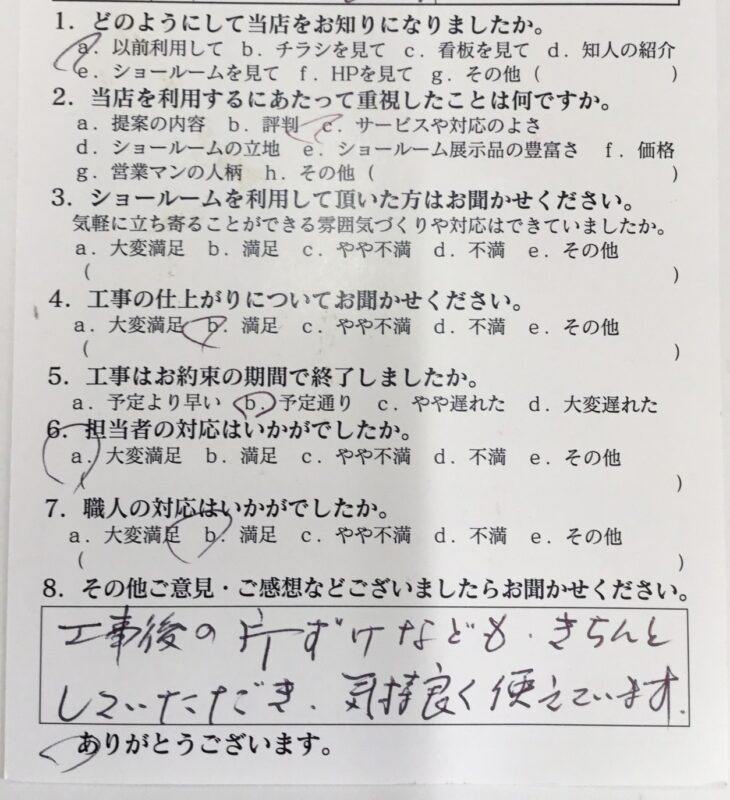 1．どのようにして当店をお知りになりましたか。
a．以前利用して b．チラシを見て c．看板を見て d．知人の紹介
e．ショールームを見て f．HPを見て g．その他（ ）
2．当店を利用するにあたって重視したことは何ですか。
a．提案の内容 b．評判 c．サービスや対応のよさ
d．ショールームの立地 e．ショールーム展示品の豊富さ f．価格
g．営業マンの人柄 h．その他（ ）
3．ショールームを利用して頂いた方はお聞かせください。
気軽に立ち寄ることができる雰囲気づくりや対応はできていましたか。
a．大変満足 b．満足 c．やや不満 d．不満 e．その他
（ ）
4．工事の仕上がりについてお聞かせください。
a．大変満足 b．満足 c．やや不満 d．不満 e．その他
（ ）
5．工事はお約束の期間で終了しましたか。
a．予定より早い b．予定通り c．やや遅れた d．大変遅れた
6．担当者の対応はいかがでしたか。
a．大変満足 b．満足 c．やや不満 d．不満 e．その他
（ ）
7．職人の対応はいかがでしたか。
a．大変満足 b．満足 c．やや不満 d．不満 e．その他
（ ）
8．その他ご意見・ご感想などございましたらお聞かせください。
工事後の片ずけなども、きちんと
していただき、気持良く使えています。
ありがとうございます。